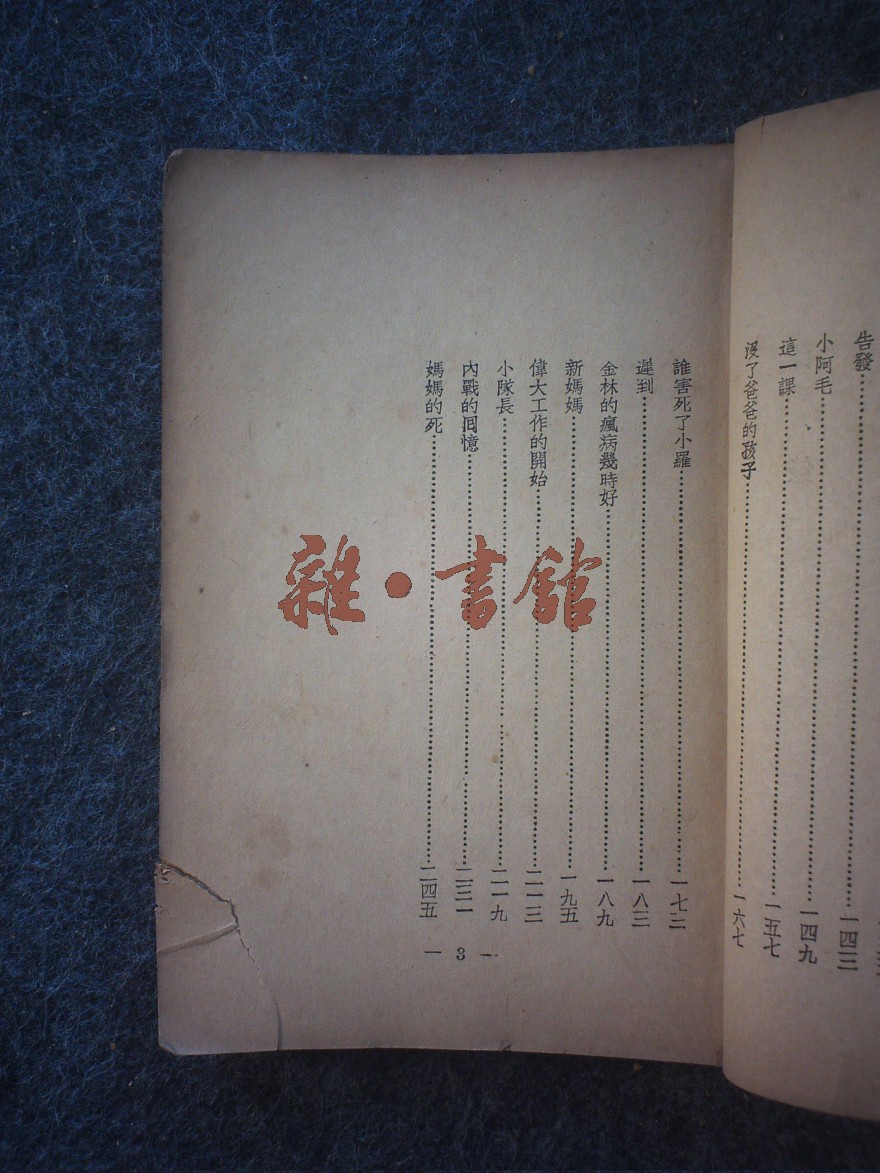 告發……一四三
小阿毛……一四九
這一課……一五七
沒了爸爸的孩子……一六七
誰害死了小羅……一七三
遲到……一八三
金林的瘋病幾時好……一八九
新媽媽……一九五
偉大工作的開始……二一三
小隊長……二一九
內戰的囘憶……二三一
媽媽的死……二四五
— 3 —
雜·書館